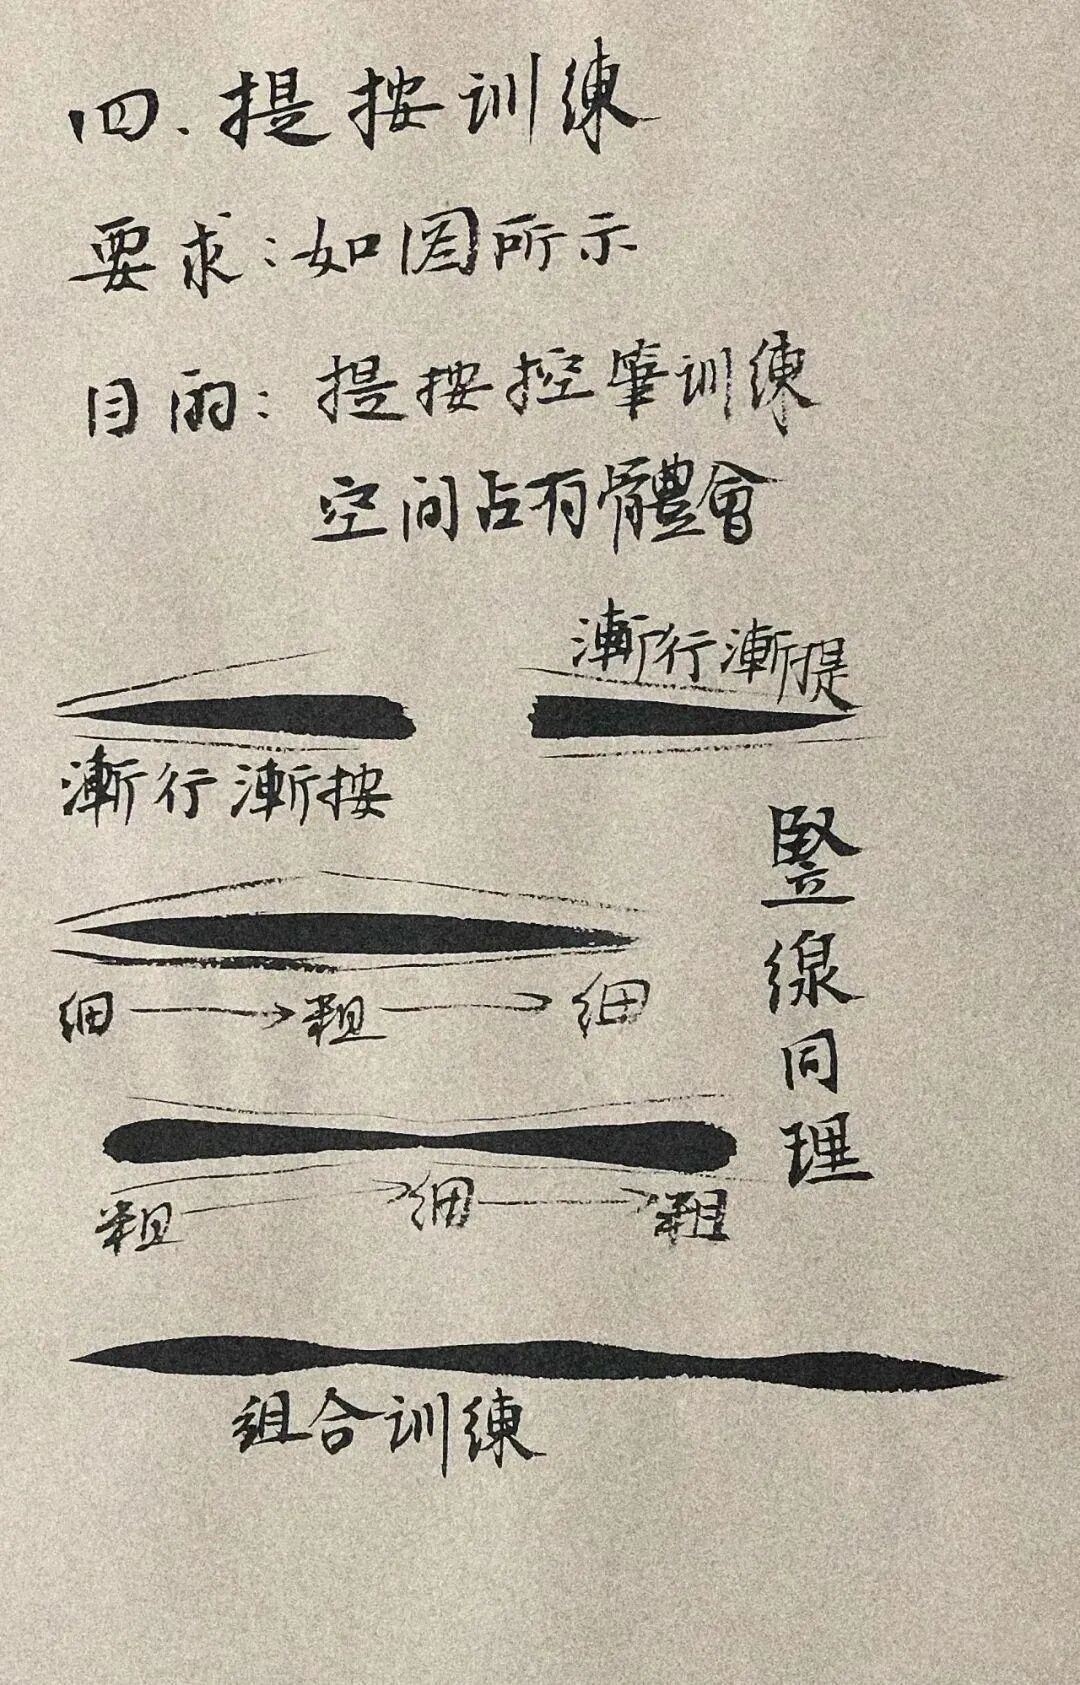 四.提按训練
要求:如图所示
目的:提按控筆训練
空间占有體會
漸行漸提
漸行漸按
細→粗→細
粗→細→粗
竪線同理
组合训練